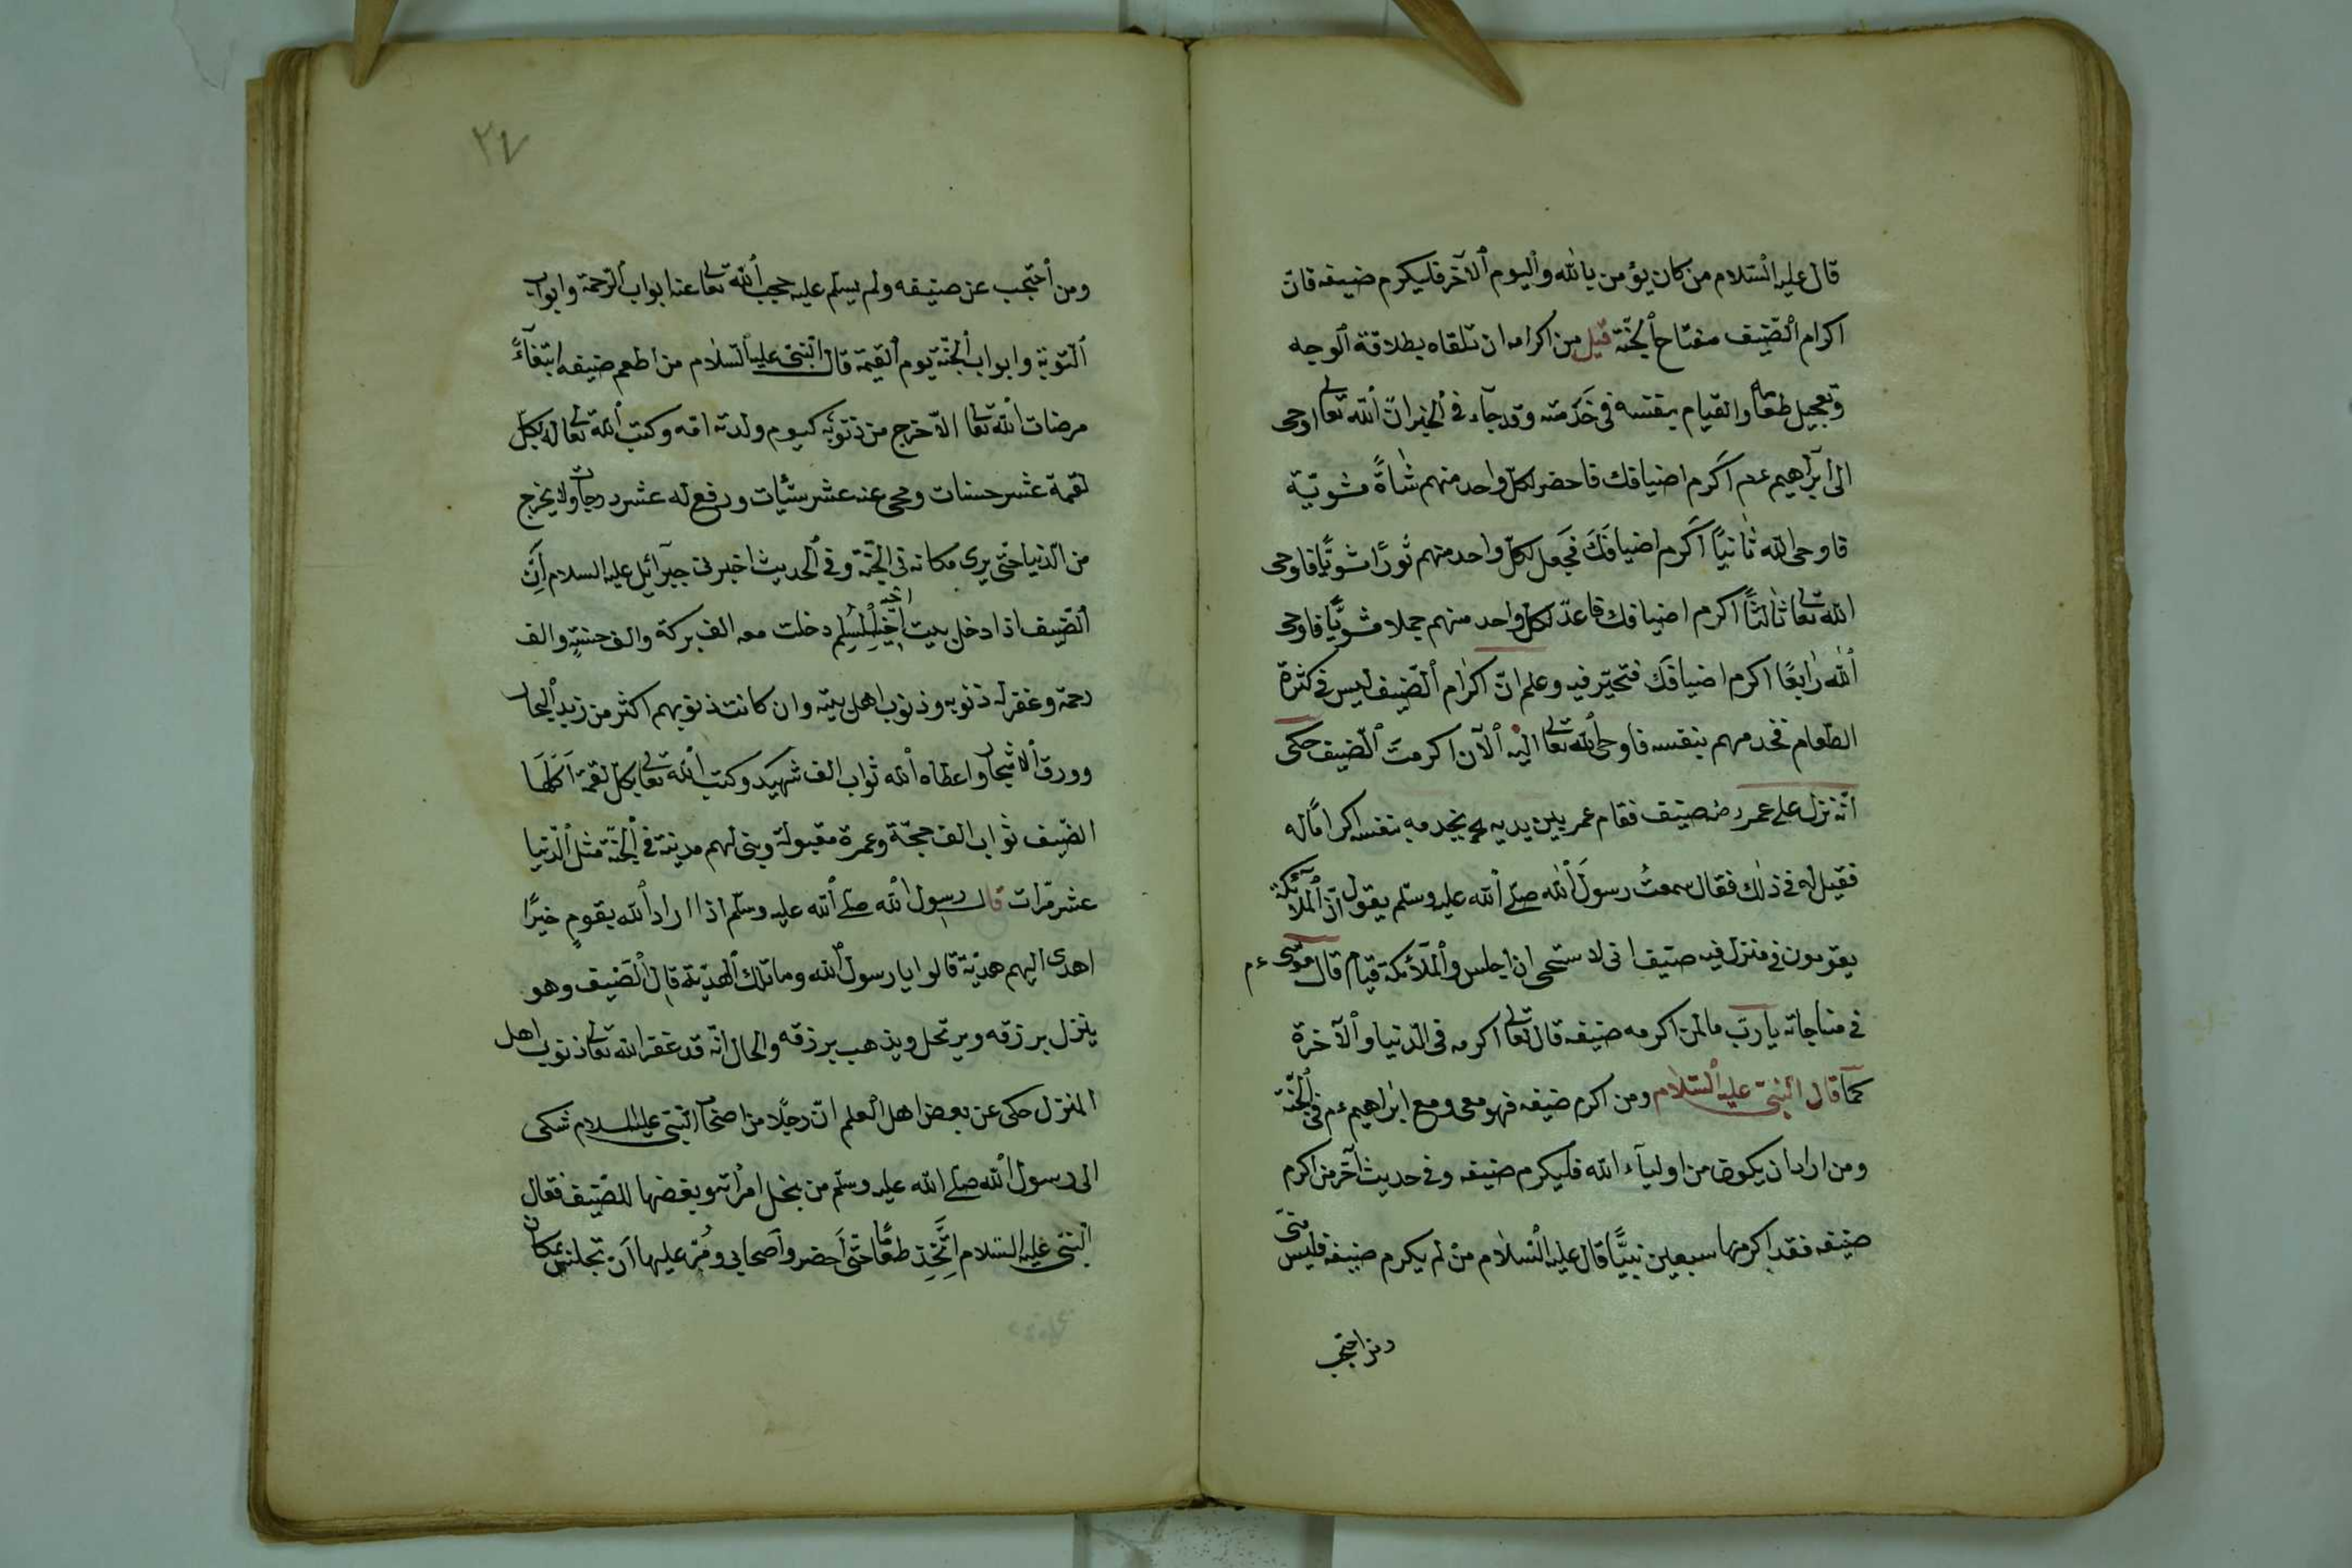 قال عليه السّلام من كان يؤمن بالله واليوم الآخر فليكرم ضيفه فان
اكرام الضّيف مفتاح الجنّة قيل من اكرامه ان تلقاه بطلاقة الوجه
وتعجيل طعامه والقيام بنفسه فى خدمته وقد جآء فى الخبر انّ الله تعالى اوحى
الى ابراهيم عم اكرم اضيافك فاحضر لكلّ واحد منهم شاةً مشويّة
فاوحى الله ثانيًا اكرم اضيافك فجعل لكلّ واحد منهم ثورًا مشويًّا فاوحى
الله تعالى ثالثًا اكرم اضيافك فاعدّ لكلّ واحد منهم جملا مشويًّا فاوحى
الله رابعًا اكرم اضيافك فتحيّر فيه وعلم انّ اكرام الضّيف ليس فى كثرة
الطّعام فخدمهم بنفسه فاوحى الله تعالى اليه الآن اكرمت الضّيف حكى
انّه نزل على عمر رض ضيف فقام عمر بين يديه يخدمه بنفسه اكرامًا له
فقيل له فى ذلك فقال سمعتُ رسولَ الله صلّى الله عليه وسلّم يقول انّ الملآئكة
يقومون فى منزل فيه ضيف انى لاستحى ان اجلس والملآئكة قيام قال موسى عم
فى مناجاته ياربّ ما لمن اكرمه ضيفه قال تعالى اكرمه فى الدّنيا والآخرة
كما قال النّبىّ عليه السّلام ومن اكرم ضيفه فهو معى ومع ابراهيم عم فى الجنّة
ومن اراد ان يكون من اوليآء الله فليكرم ضيفه وفى حديث آخر من اكرم
ضيفه فقد اكرمها سبعين نبيًّا قال عليه السّلام من لم يكرم ضيفه فليس منّى
ومن احتجب
٣٤
ومن احتجب عن ضيفه ولم يسلّم عليه حجب الله تعالى عنه ابواب الرّحمة وابواب
التّوبة وابواب الجنّة يوم القيمة قال النّبىّ عليه السّلام من اطعم ضيفه ابتغآءً
مرضات الله تعالى الاّ خرج من ذنوبه كيوم ولدته امّه وكتب الله تعالى له بكلّ
لقمة عشر حسنات ومحى عنه عشر سيّئات ورفع له عشر درجات ولا يخرج
من الدّنيا حتّى يرى مكانه فى الجنّة وفى الحديث اخبرنى جبرآئيل عليه السلام انّ
الضّيف اذا دخل بيت اخيه المسلم دخلت معه الف بركة والف حسنة والف
رحمة وغفر له ذنوبه وذنوب اهل بيته وان كانت ذنوبهم اكثر من زبد البحار
وورق الاشجار واعطاه الله ثواب الف شهيد وكتب الله تعالى بكلّ لقمة اكلها
الضّيف ثواب الف حجّة وعمرة مقبولة وبنى لهم مدينة فى الجنّة مثل الدّنيا
عشر مرّات قال رسول الله صلّى الله عليه وسلّم اذا اراد الله بقومٍ خيرًا
اهدى اليهم هديّة قالوا يا رسول الله وما تلك الهديّة قال الضّيف وهو
ينزل برزقه ويرتحل ويذهب برزقه والحال انّه قد غفر الله تعالى ذنوب اهل
المنزل حكى عن بعض اهل العلم انّ رجلًا من اصحاب النّبىّ عليه السلام شكى
الى رسول الله صلّى الله عليه وسلّم من بخل امرأته وبغضها للضّيف فقال
النّبىّ عليه السّلام اتّخذ طعامًا حتّى احضر واصحابى ومُر عليها ان تجلس بمكان